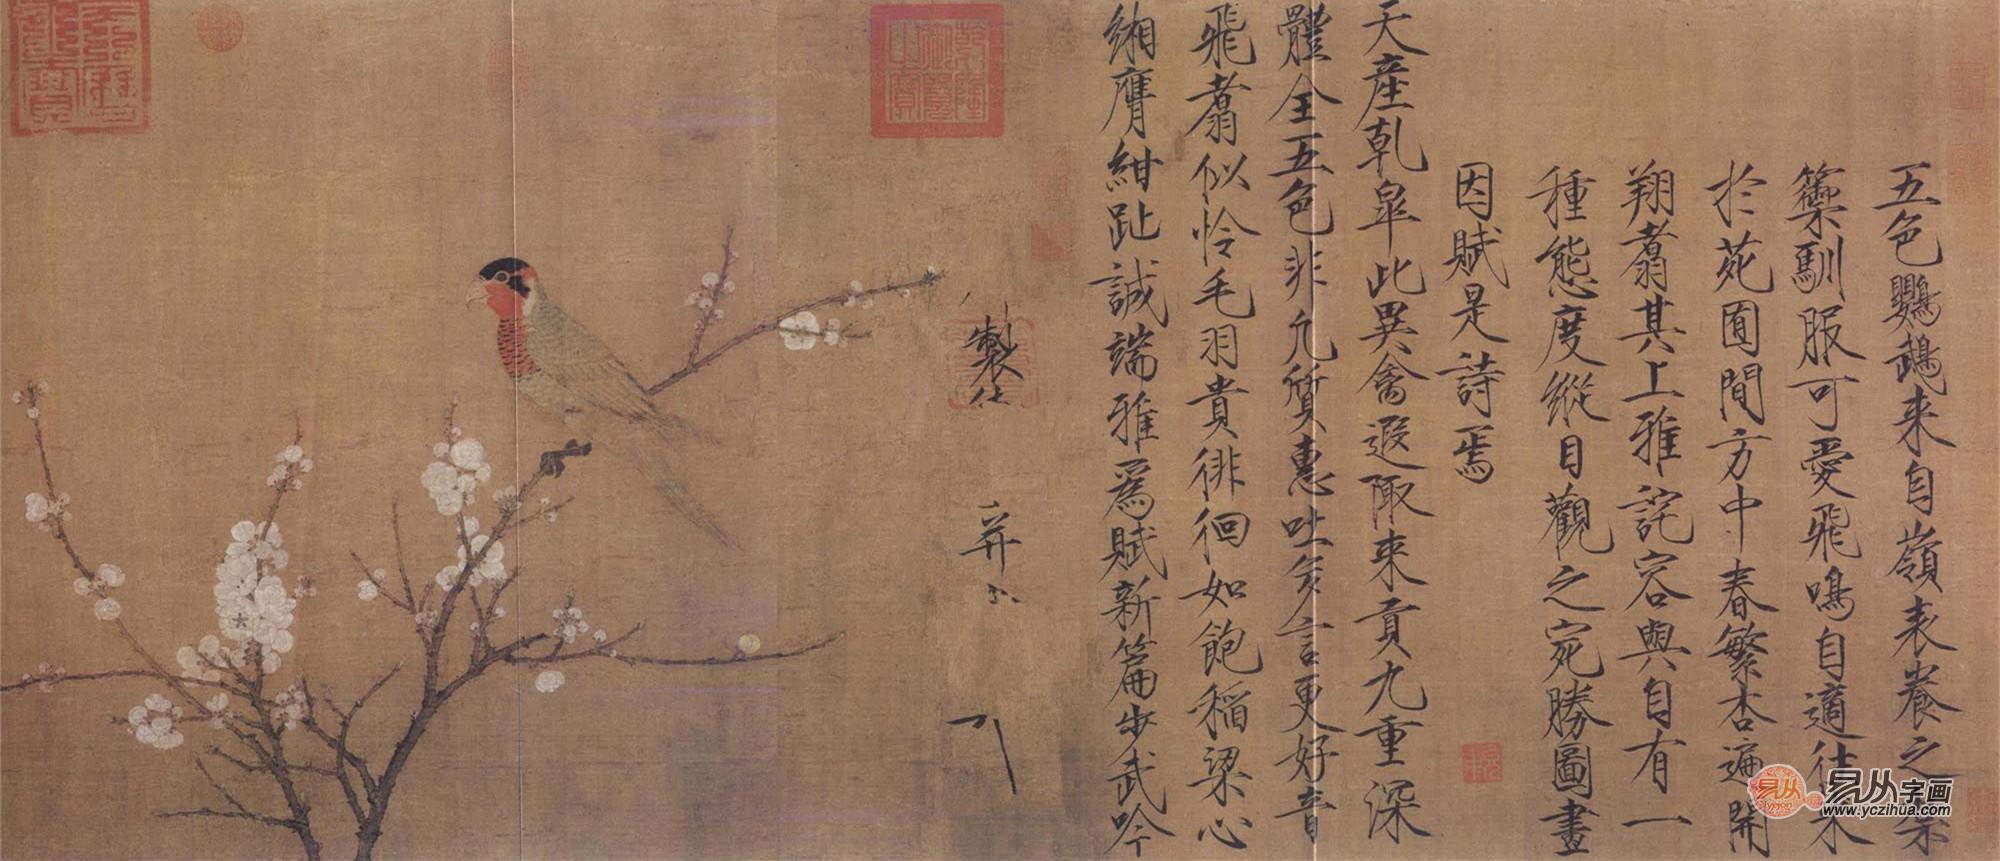 五色鸚鵡来自嶺表養之禁
籞馴服可愛飛鳴自適往来
於苑囿間方中春繁杏遍開
翔翥其上雅詫容與自有一
種態度縱目觀之宛勝圖畫
因賦是詩焉
天産乾皐此異禽遐陬来貢九重深
體全五色非凡質惠吐多言更好音
飛翥似怜毛羽貴徘徊如飽稲粱心
緗膺紺趾誠端雅爲賦新篇步武吟
製
易从
易从字画
www.yczihua.com